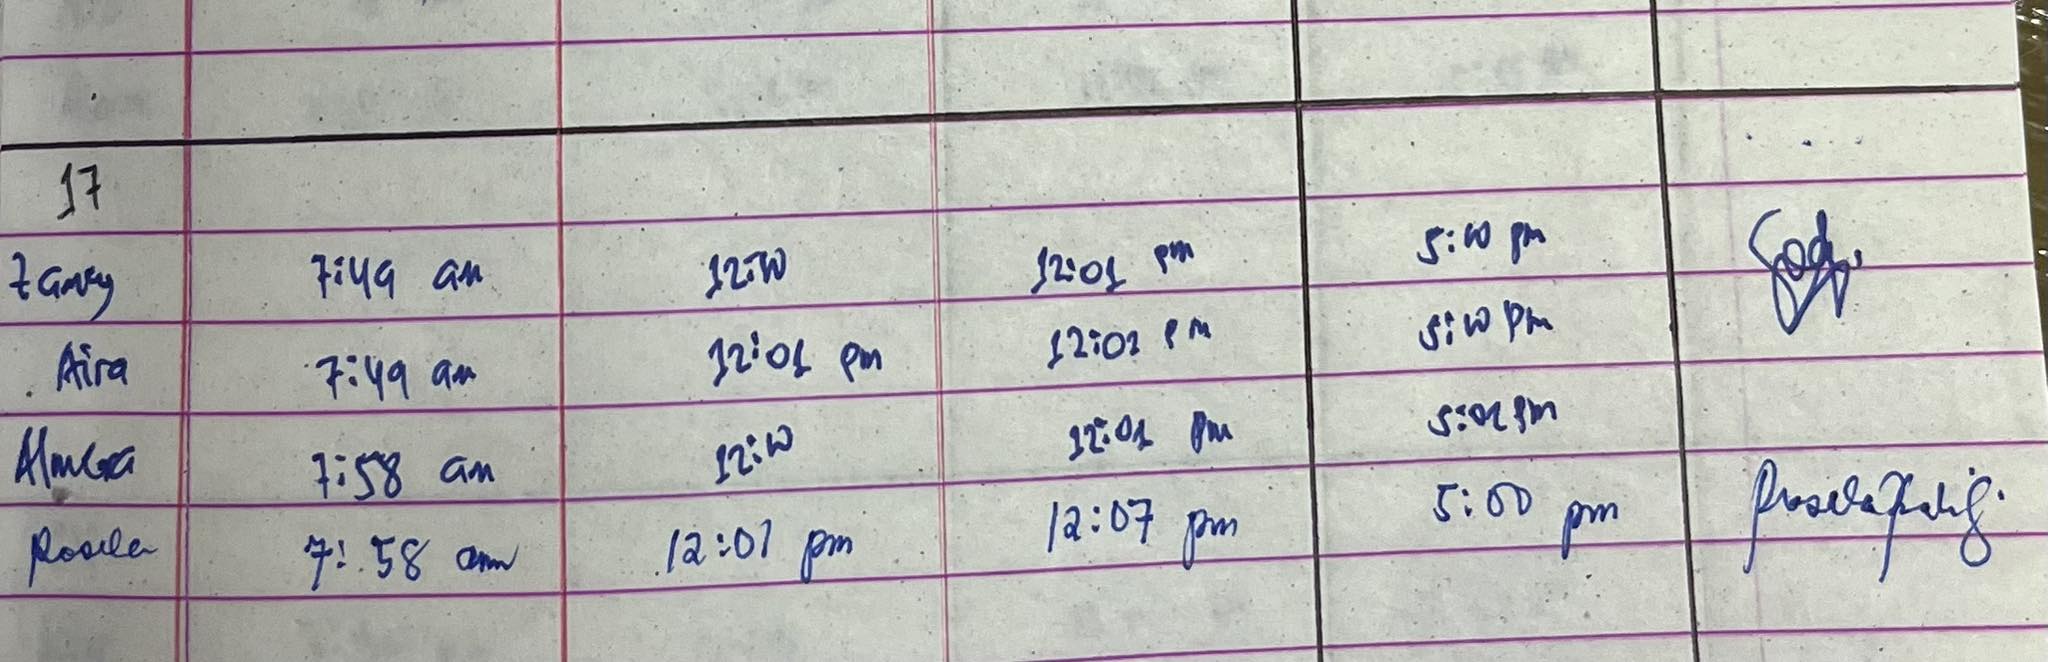 17
Zanky 7:49 am 12:00 12:01 pm 5:00 pm
Aira 7:49 am 12:01 pm 12:02 pm 5:00 pm
Almera 7:58 am 12:00 12:01 pm 5:02 pm
Rosela 7:58 am 12:01 pm 12:07 pm 5:00 pm